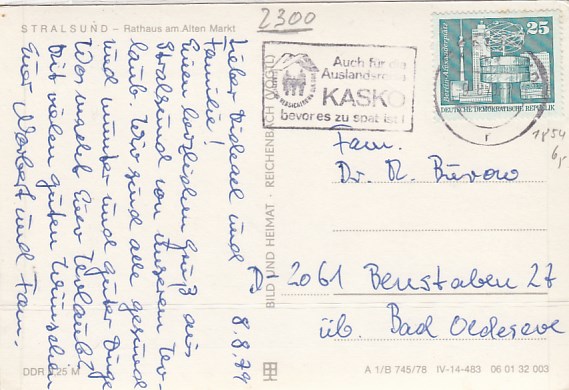 STRALSUND – Rathaus am Alten Markt
2300
8.8.79
Lieber Michael und
Familie!
Einen herzlichen Gruß aus
Stralsund von unserem Ur-
laub. Wir sind alle gesund
und munter und guter Dinge.
Was macht Euer Urlaub?
Mit vielen guten Wünschen
Euer Norbert und Fam.
DDR 0,25 M
BILD UND HEIMAT · REICHENBACH (VOGTL)
Auch für die
Auslandsreise
KASKO
bevor es zu spät ist!
25
Berlin, Alexanderplatz
DEUTSCHE DEMOKRATISCHE REPUBLIK
1854
Fam.
Dr. R. Burow
D 2061 Benstaben 27
üb. Bad Oldesloe
A 1/B 745/78 IV-14-483 06 01 32 003